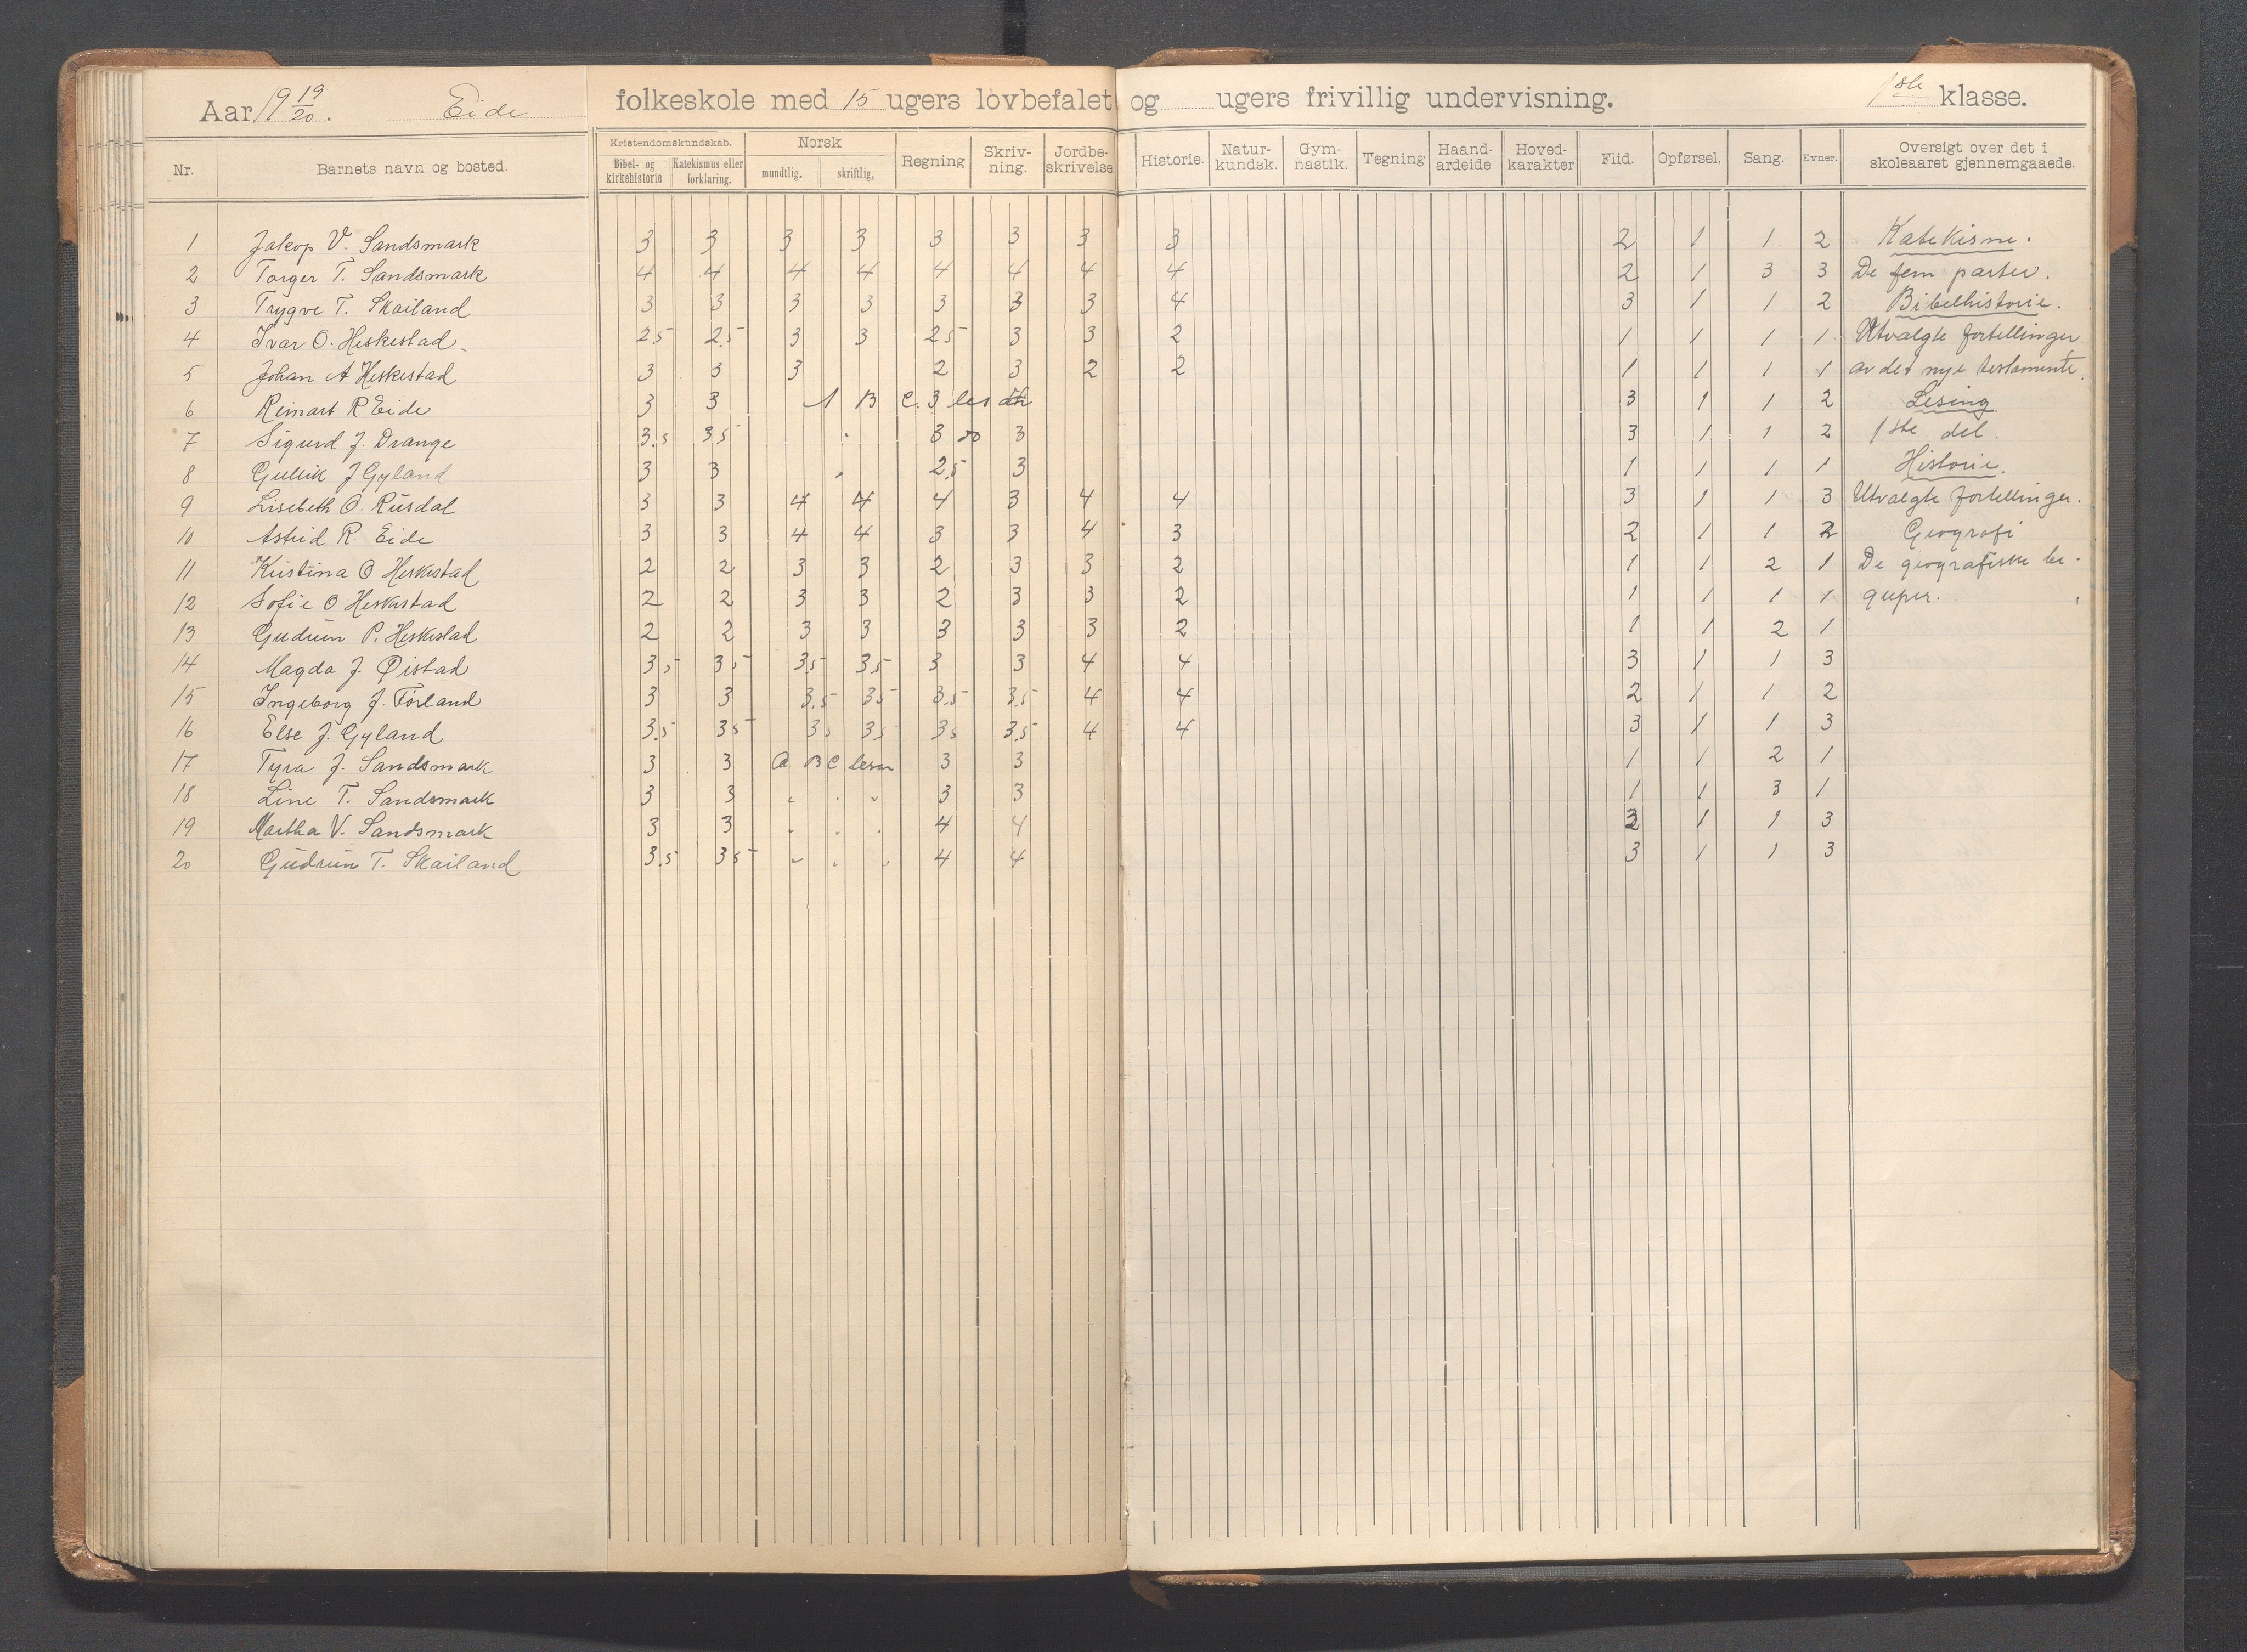 Aar 19 19/20. Eide folkeskole med 15 ugers lovbefalet og ugers frivillig undervisning. 1ste klasse.
Nr. Barnets navn og bosted. Kristendomskundskab. Bibel- og kirkehistorie Katekismus eller forklaring. Norsk mundtlig. skriftlig, Regning Skriv-ning. Jordbe-skrivelse Historie. Natur-kundsk. Gym-nastik. Tegning Haand-ardeide Hoved-karakter Flid. Opførsel. Sang. Evner. Oversigt over det i skoleaaret gjennemgaaede.
1 Jakop V. Sandsmark 3 3 3 3 3 3 3 3 2 1 1 2 Katekisme.
2 Torger T. Sandsmark 4 4 4 4 4 4 4 4 2 1 3 3 De fem parter.
3 Trygve T. Skailand 3 3 3 3 3 3 3 4 3 1 1 2 Bibelhistorie.
4 Ivar O. Heskestad 2.5 2.5 3 3 2.5 3 3 2 1 1 1 1 Utvalgte fortellinger
5 Johan A Heskestad 3 3 3 2 3 2 2 1 1 1 1 av det nye testamente.
6 Reinart R. Eide 3 3 A B C. 3 les 3 1 1 2 Lesing.
7 Sigurd J. Drange 3.5 3.5 " 3 do 3 3 1 1 2 1ste del.
8 Gullik J Gyland 3 3 " 2.5 3 1 1 1 1 Historie.
9 Lisebeth O. Rusdal 3 3 4 4 4 3 4 4 3 1 1 3 Utvalgte fortellinger.
10 Astrid R. Eide 3 3 4 4 3 3 4 3 2 1 1 2 Geografi
11 Kristina O Heskestad 2 2 3 3 2 3 3 2 1 1 2 1 De geografiske be-
12 Sofie O Heskestad 2 2 3 3 2 3 3 2 1 1 1 1 greper.
13 Gudrun P. Heskestad 2 2 3 3 3 3 3 2 1 1 2 1
14 Magda J. Øistad 3.5 3.5 3.5 3.5 3 3 4 4 3 1 1 3
15 Ingeborg J. Førland 3 3 3.5 3.5 3.5 3.5 4 4 2 1 1 2
16 Else J. Gyland 3.5 3.5 3.5 3.5 3.5 3.5 4 4 3 1 1 3
17 Tyra J. Sandsmark 3 3 A B C leser 3 3 1 1 2 1
18 Line T. Sandsmark 3 3 " " " 3 3 1 1 3 1
19 Martha V. Sandsmark 3 3 " " " 4 4 2 1 1 3
20 Gudrun T. Skailand 3.5 3.5 " " " 4 4 3 1 1 3